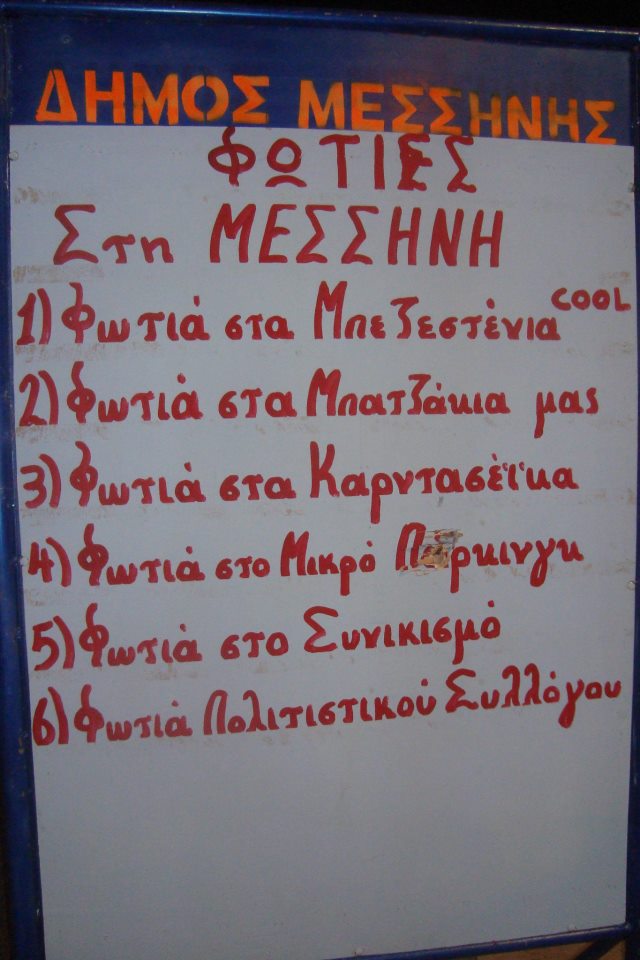 ΔΗΜΟΣ ΜΕΣΣΗΝΗΣ
ΦΩΤΙΕΣ
Στη ΜΕΣΣΗΝΗ
1) Φωτιά στα Μπεζεστένια COOL
2) Φωτιά στα Μπατζάκια μας
3) Φωτιά στα Καρντασέϊκα
4) Φωτιά στο Μικρό Πάρκινγκ
5) Φωτιά στο Συνικισμό
6) Φωτιά Πολιτιστικού Συλλόγου